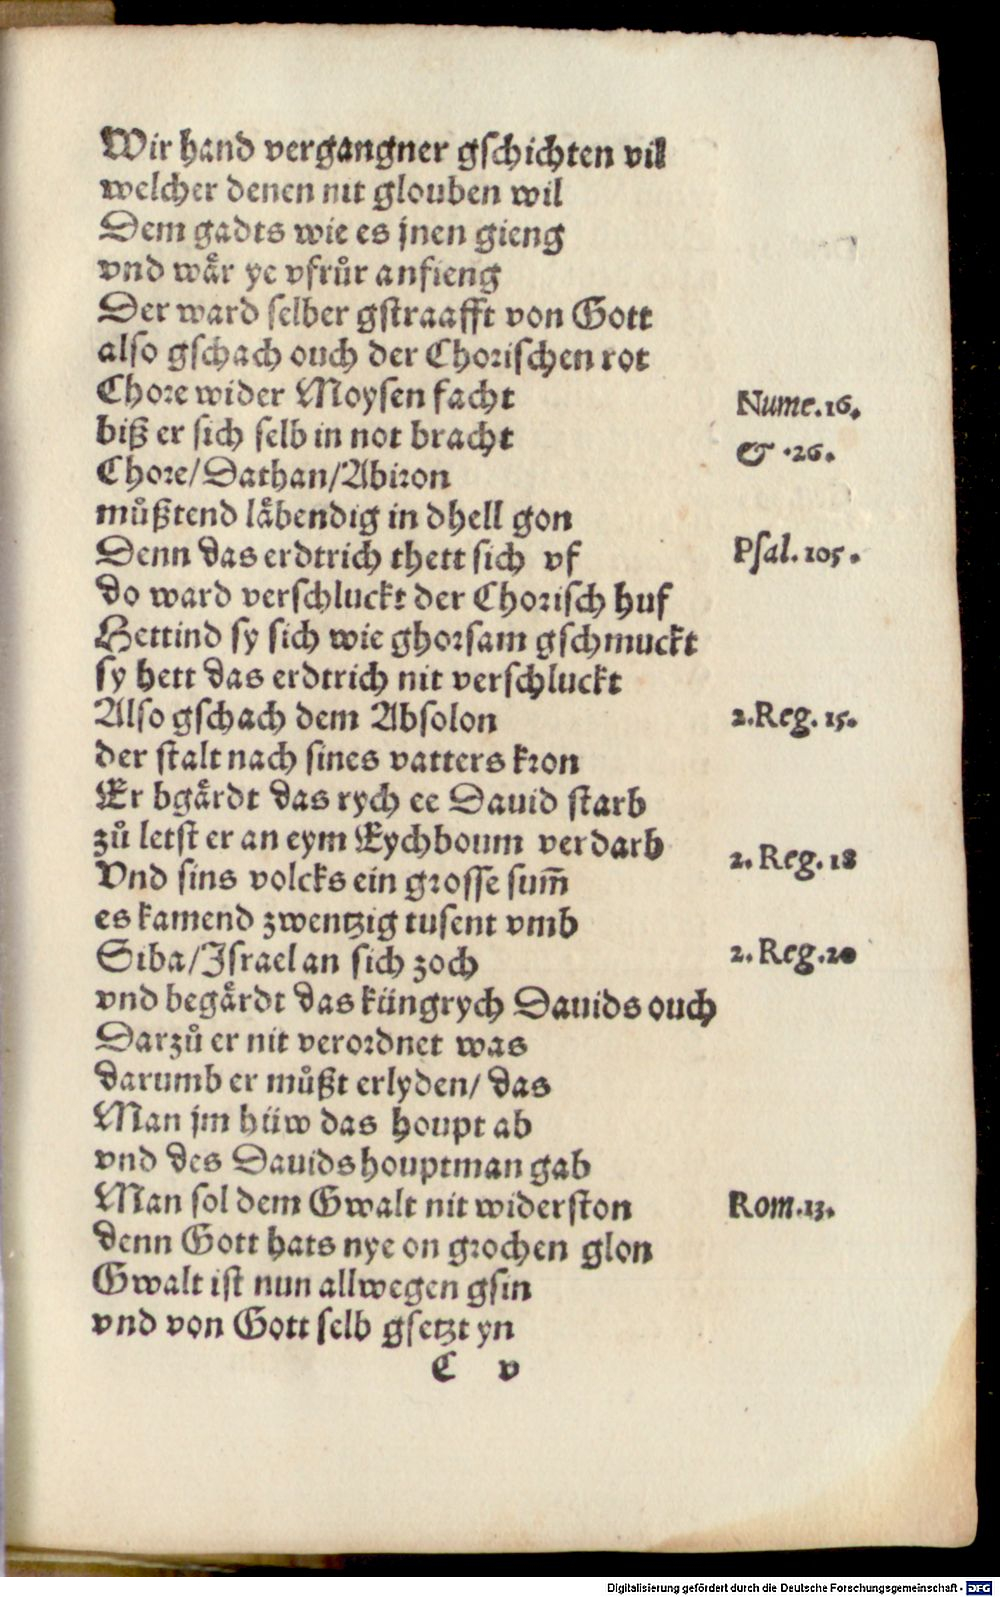 Wir hand vergangner gschichten vil
welcher denen nit glouben wil
Dem gadts wie es jnen gieng
vnd waͤr ye vfruͦr anfieng
Der ward selber gstraafft von Gott
also gschach ouch der Chorischen rot
Chore wider Moysen facht
Nume.16.
biß er sich selb in not bracht
& .26.
Chore/Dathan/Abiron
muͤßtend laͤbendig in dhell gon
Denn das erdtrich thett sich vf
Psal.105.
do ward verschluckt der Chorisch huf
Hettind sy sich wie ghorsam gschmuckt
sy hett das erdtrich nit verschluckt
Also gschach dem Absolon
2.Reg.15.
der stalt nach sines vatters kron
Er bgaͤrdt das rych ee Dauid starb
zuͦ letst er an eym Eychboum verdarb
2.Reg.18
Vnd sins volcks ein grosse sum̄
es kamend zwentzig tusent vmb
Siba/Israel an sich zoch
2.Reg.20
vnd begaͤrdt das küngrych Dauids ouch
Darzuͦ er nit verordnet was
darumb er muͦßt erlyden/ das
Man jm hüw das houpt ab
vnd des Dauids houptman gab
Man sol dem Gwalt nit widerston
Rom.13.
denn Gott hats nye on grochen glon
Gwalt ist nun allwegen gsin
vnd von Gott selb gsetzt yn
C v
Digitalisierung gefördert durch die Deutsche Forschungsgemeinschaft - DFG